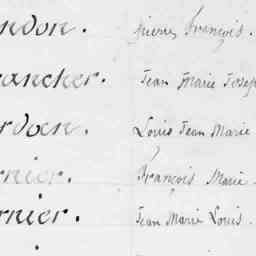 ndon. Pierre François.
rancher. Jean Marie Josep
rdan. Louis Jean Marie
rnier. François Marie.
rnier. Jean Marie Louis.